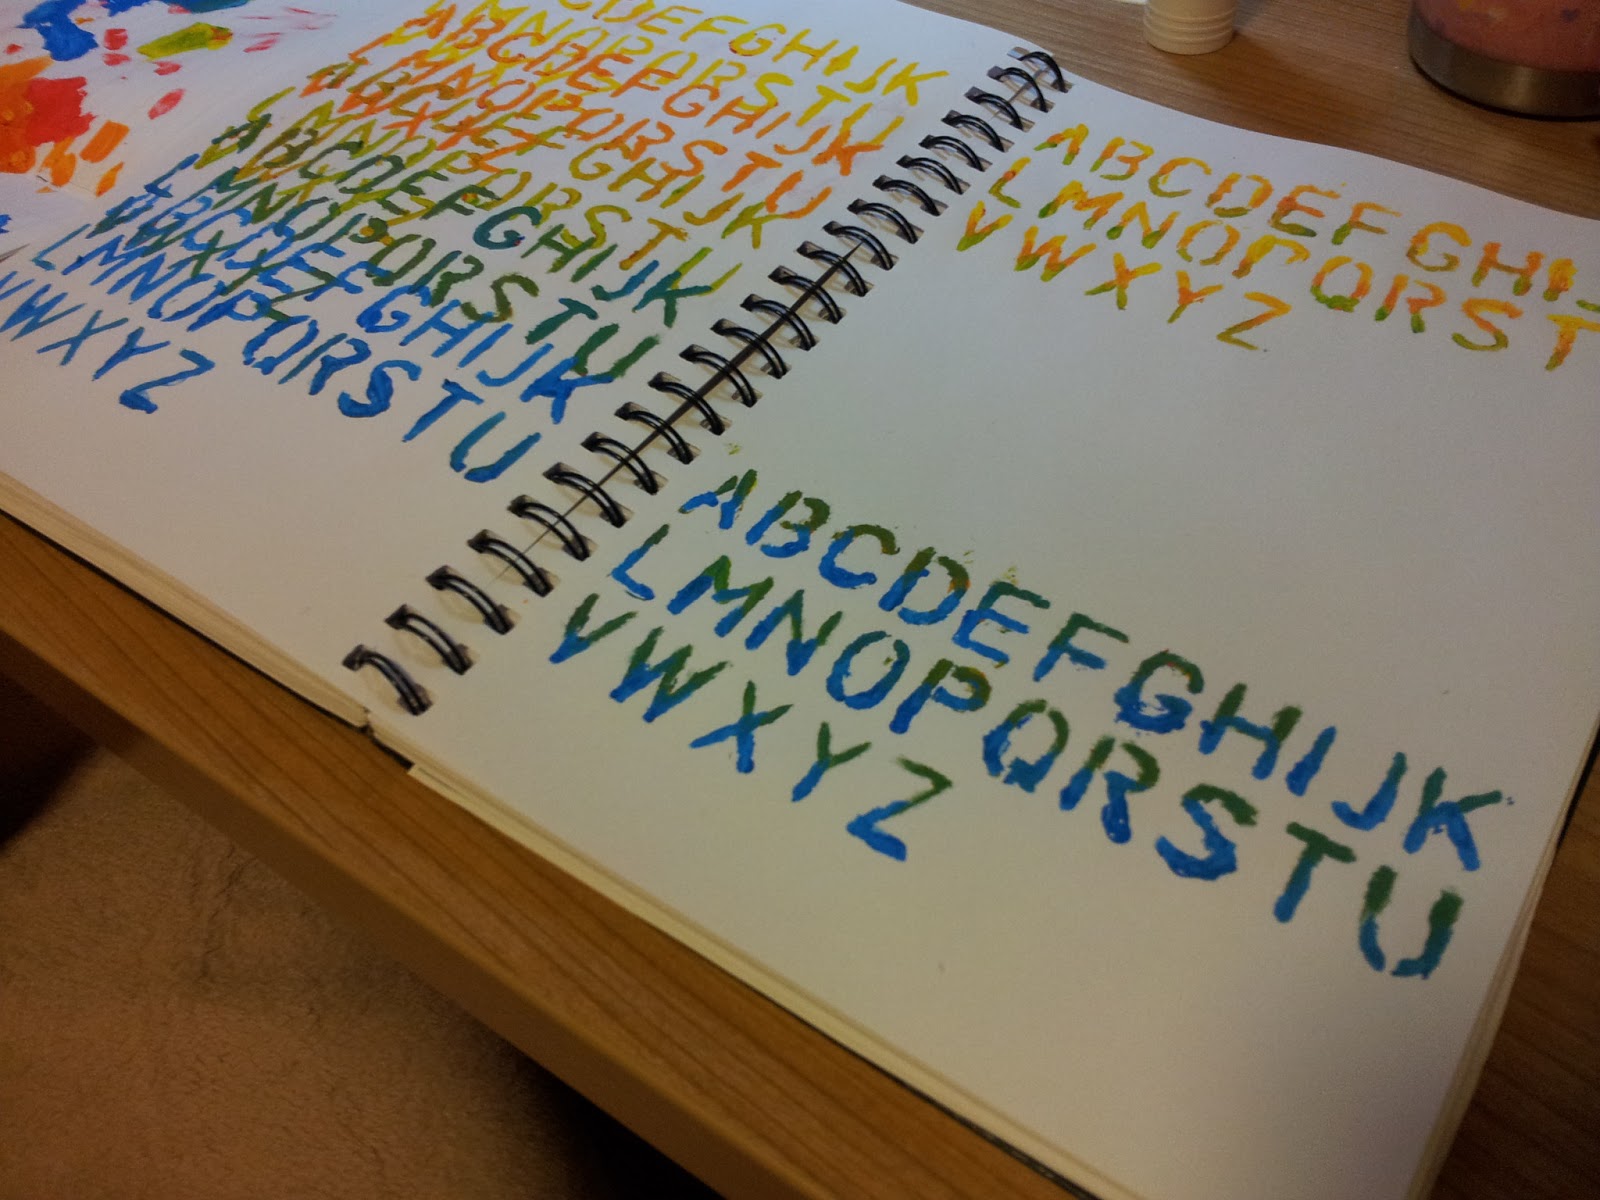 CDEFGHIJK
LMNOPQRSTU
ABCDEFGHIJK
LMNOPQRSTU
VWXYZ
ABCDEFGHIJK
LMNOPQRSTU
VWXYZ
ABCDEFGHIJK
LMNOPQRSTU
VWXYZ
ABCDEFGHIJK
LMNOPQRSTU
VWXYZ
ABCDEFGHIJ
LMNOPQRST
VWXYZ
ABCDEFGHIJK
LMNOPQRSTU
VWXYZ